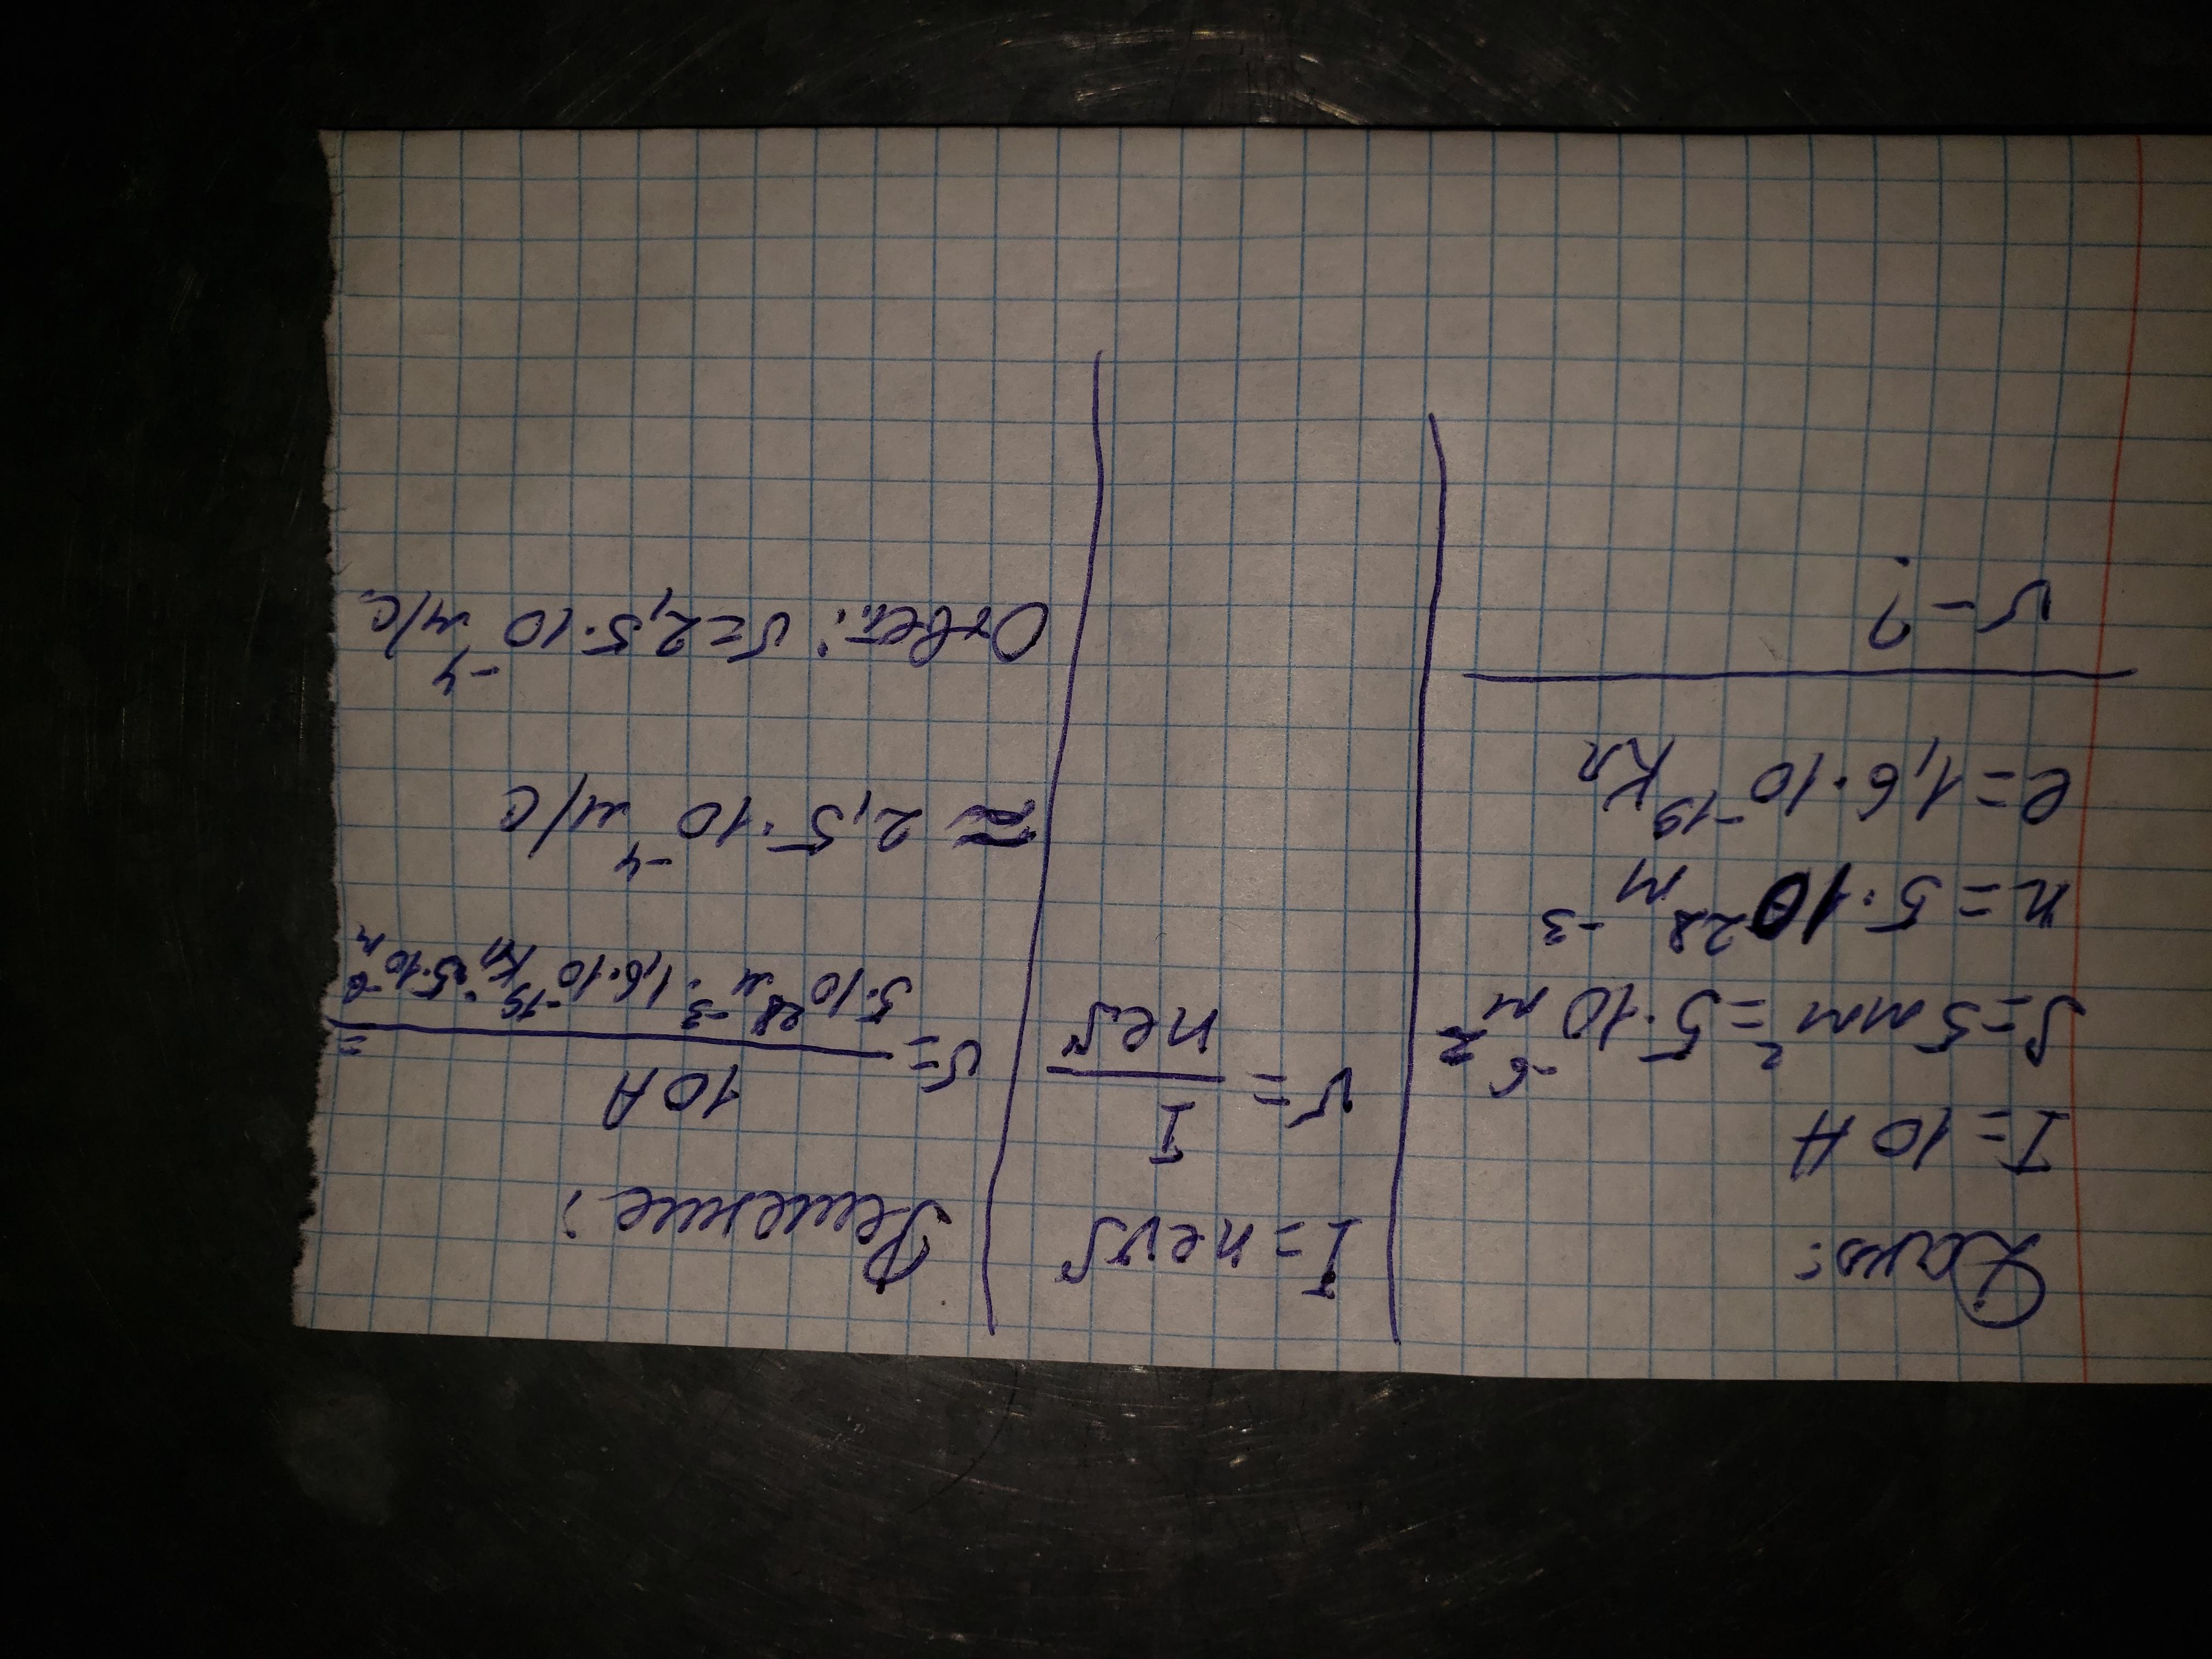 Дано:
I = 10 A
S = 5 мм² = 5·10⁻⁶ м²
n = 5·10²⁸ м⁻³
e = 1,6·10⁻¹⁹ Кл
v - ?
I = nevS
v = I / neS
Решение:
v = 10 A / 5·10²⁸ м⁻³ · 1,6·10⁻¹⁹ Кл · 5·10⁻⁶ м =
≈ 2,5·10⁻⁴ м/с
Ответ: v = 2,5·10⁻⁴ м/с